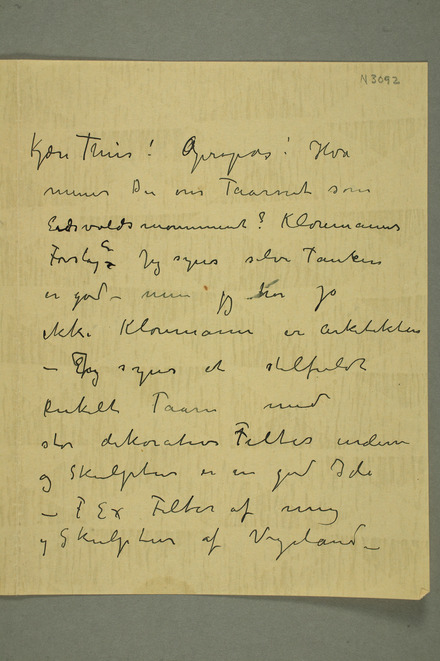 N 3092
Kjære Thiis! Apropos! Hva
mener Du om Taarnet som
Eidsvoldsmonument? Kloumanns
Forslag Jeg synes selve Tanken
er god – men jeg tror jo
ikke Kloumann er arkitekten
– Jeg synes et stilfuldt
enkelt Taarn med
stor dekorative Felter indeni
og Skulptur er en god Ide
– F Ex Felter af mig
og Skulptur af Vigeland –